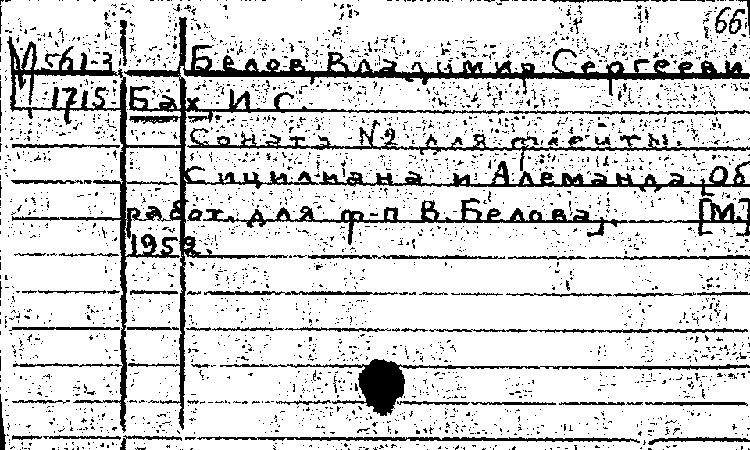 66
М 561-3 Белов, Владимир Сергееви
1715 Бах И. С.
Соната №2 для флейты.
Сицилиана и Алеманда. [Об
работ. для ф-п В. Белова]. [М.]
1958.